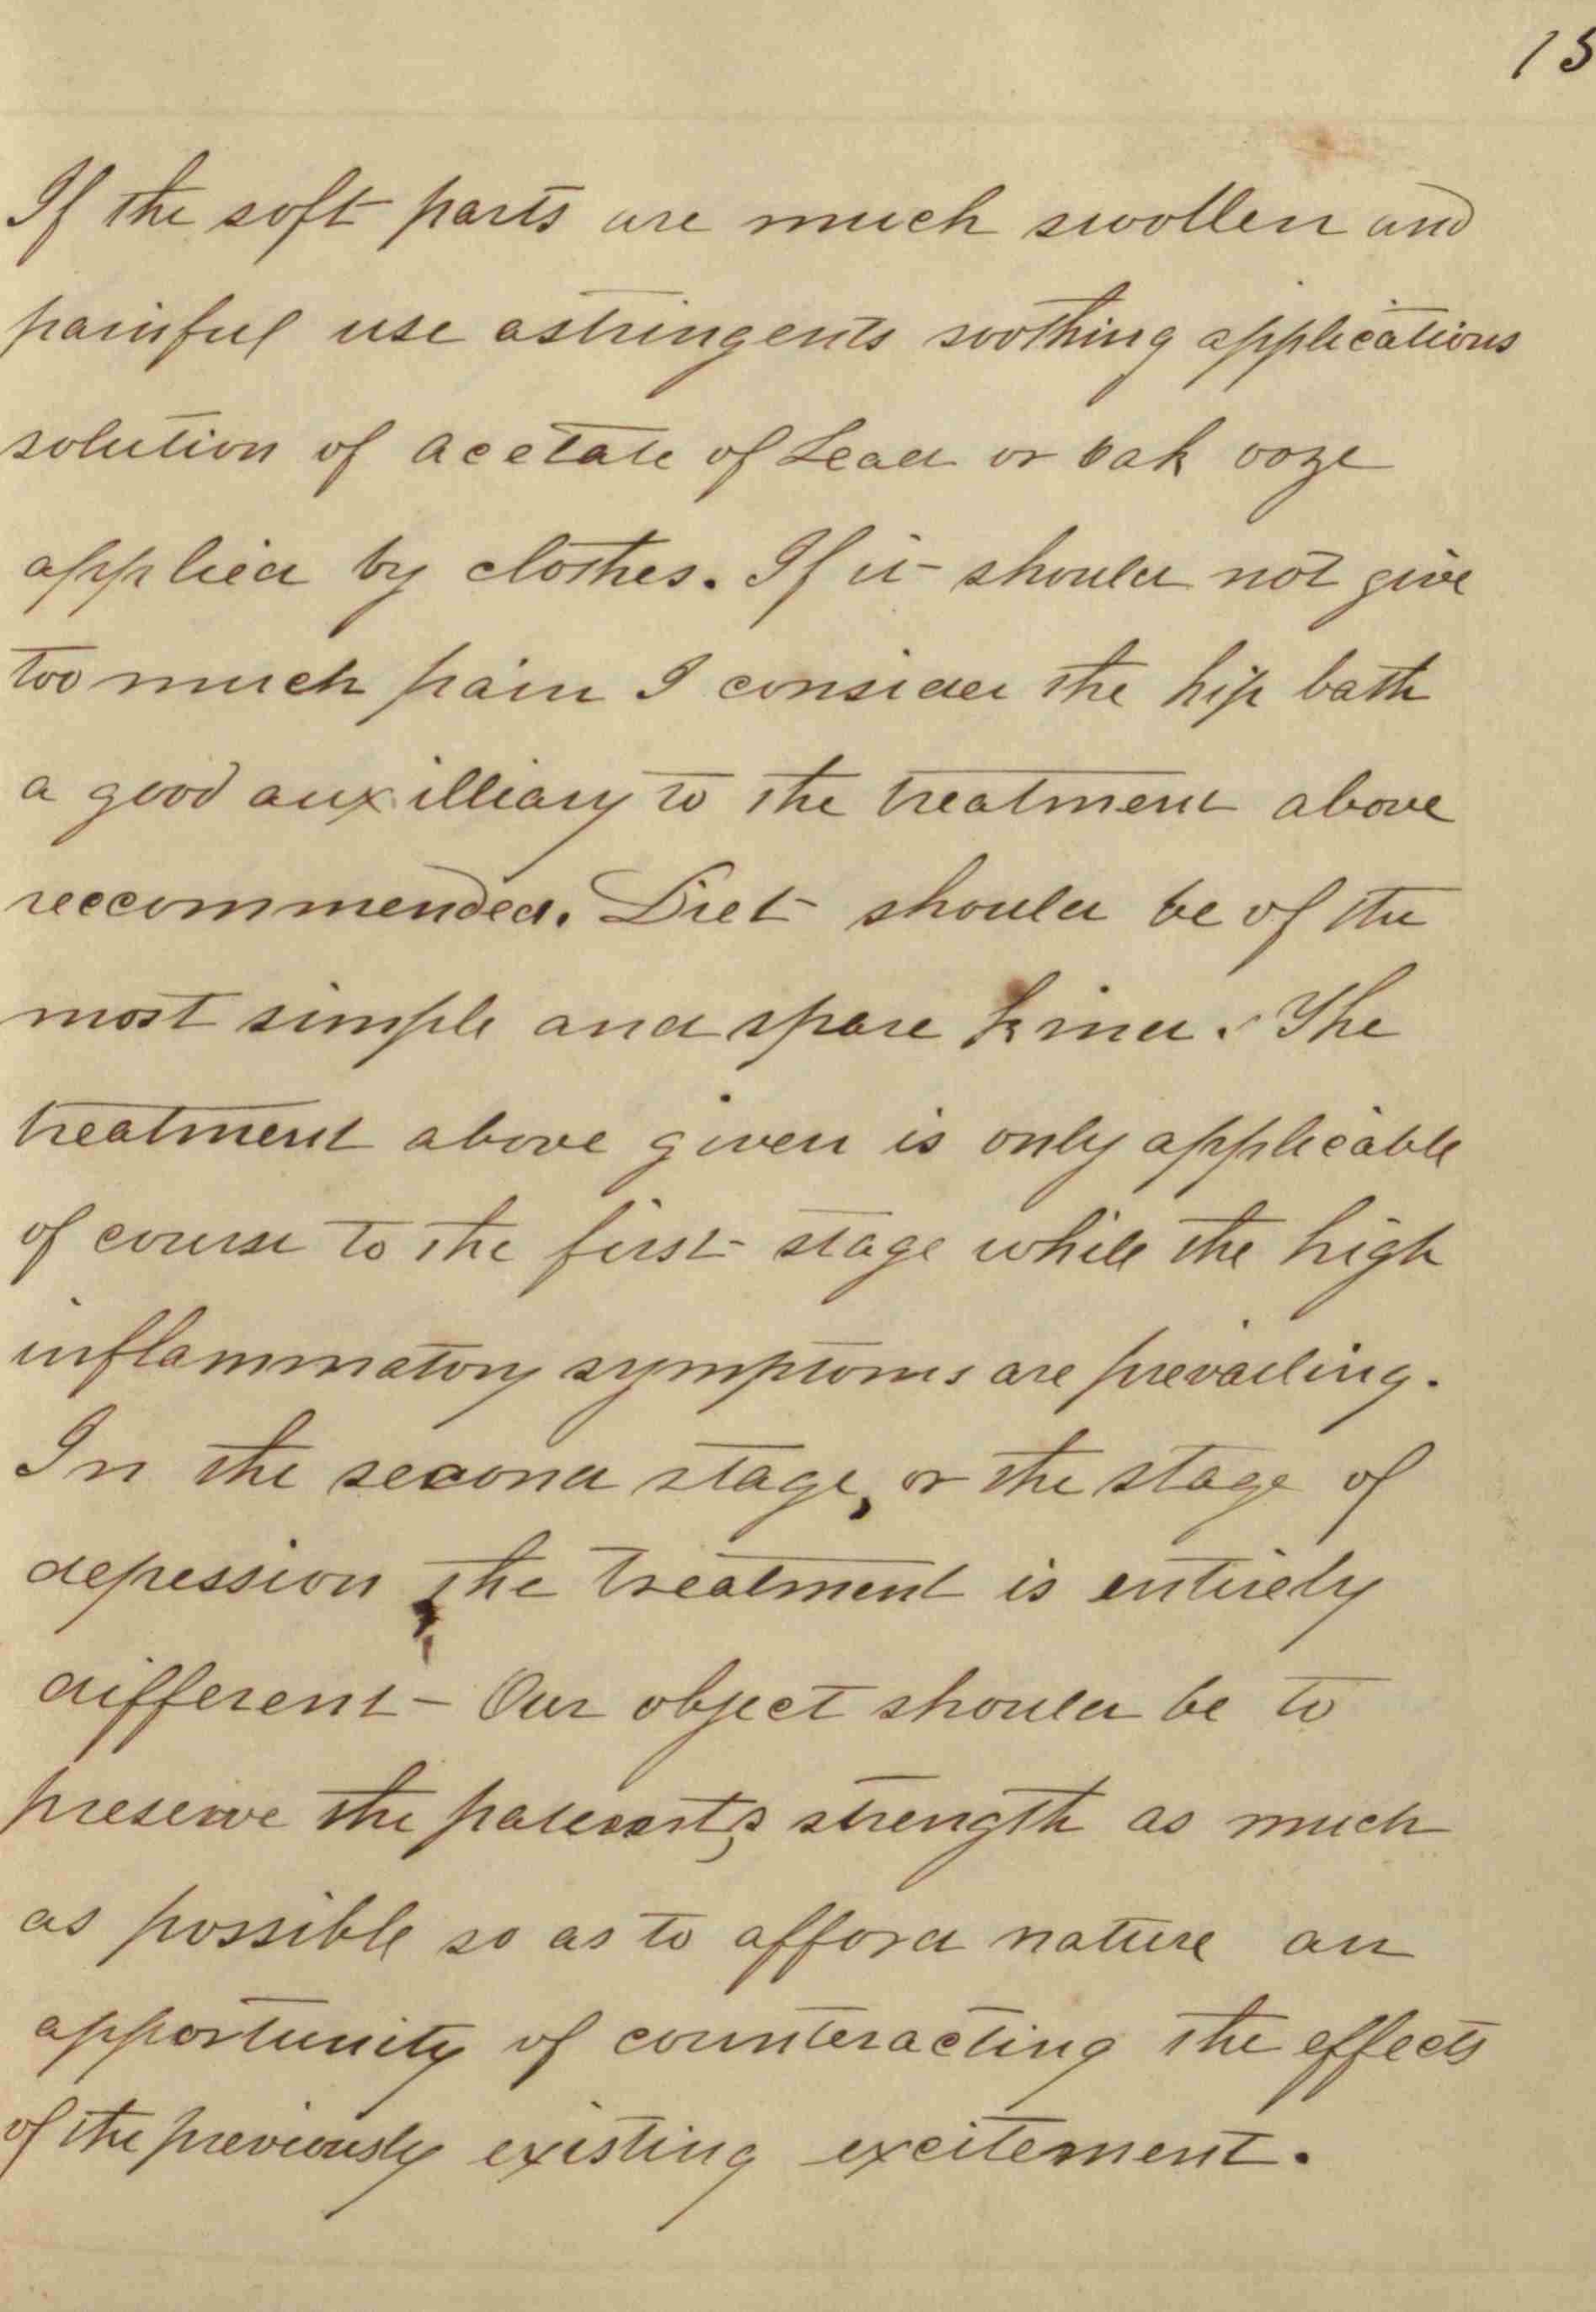 15
If the soft parts are much swollen and
painful use astringents soothing applications
solution of acetate of Lead or oak ooze
applied by clothes. If it should not give
too much pain I consider the hip bath
a good auxilliary to the treatment above
reccommended. Diet should be of the
most simple and spare kind. The
treatment above given is only applicable
of course to the first stage while the high
inflammatory symptoms are prevailing.
In the second stage, or the stage of
depession, the treatment is entirely
different - Our object should be to
preserve the patients strength as much
as possible so as to afford nature an
opportunity of counteracting the effects
of the previously existing excitement.